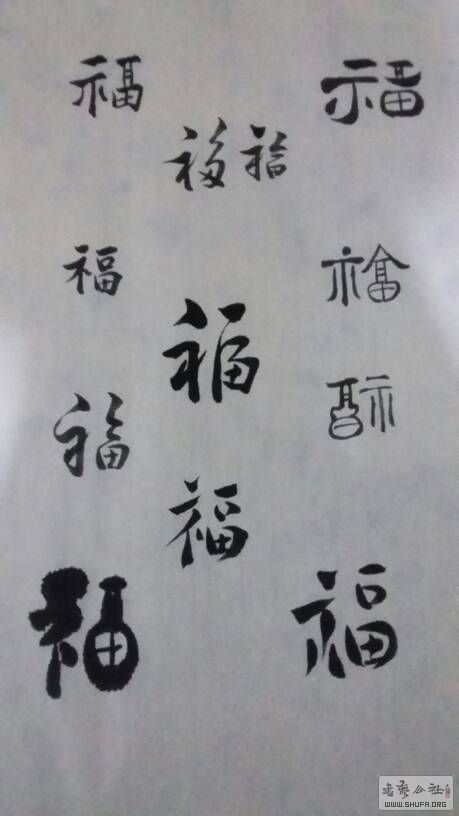 福
福
福
福
福 福
福
福
福
福
福
福
书艺公社
WWW.SHUFA.ORG